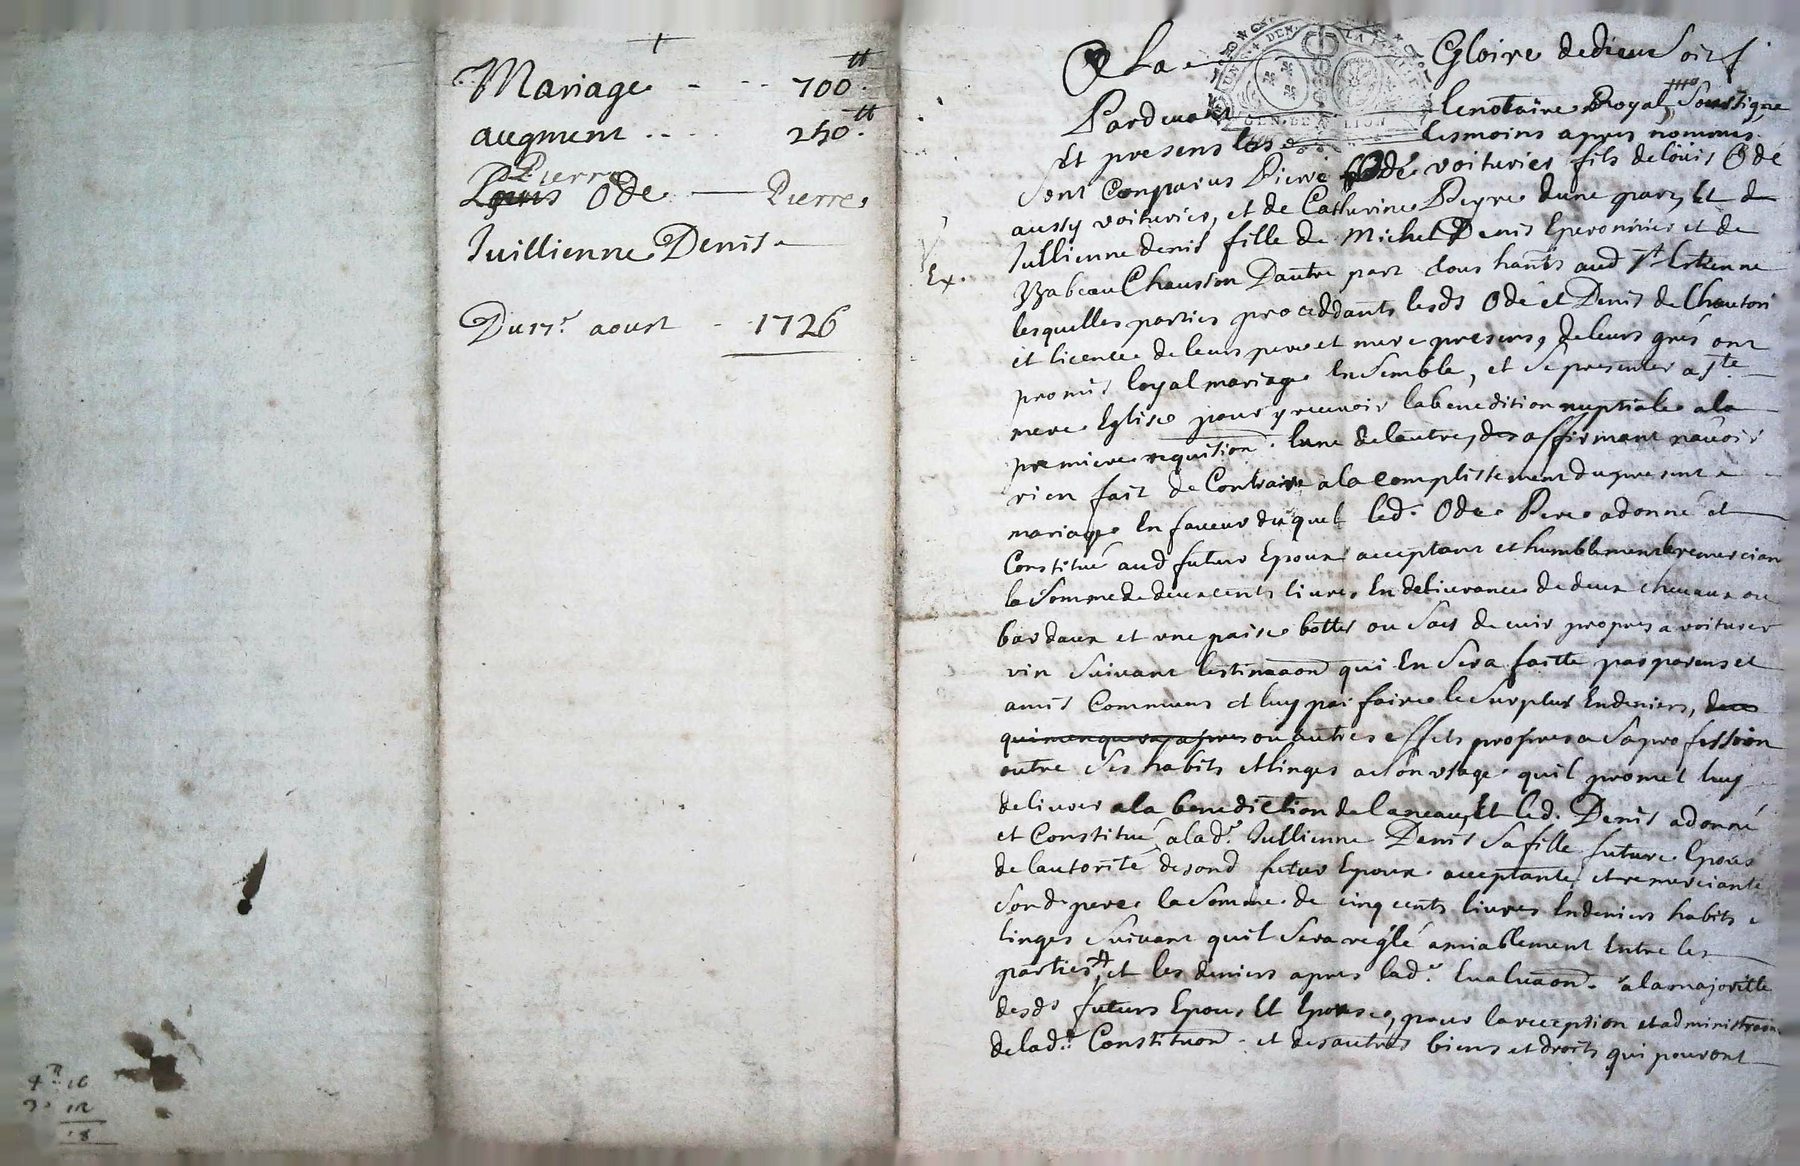 Mariage - - 700.tt
augment .... 250.tt
Pierre
Louis Odé — Pierre
Jullienne Denis
Du 17.e aoust - 1726
4 16
3 12
18
Ex.
A La Gloire de dieu Soit
UN S. 4 DEN. LA FEUILLE
GEN. DE LION
Pardevant le notaire Royal Soussigne
Et presens les tesmoins apres nommes
Sont Comparus Pierre Odé voiturier fils de Loüis Odé
aussy voiturier, et de Catherine Peyre dune part, Et
Jullienne denis fille de Michel Denis Eperonnier et de
Yzabeau Chausson Dautre part tous hants aud St Estienne
lesquelles parties proceddants lesds Odé et Denis de Lhautori
et licence de leurs pere et mere presens, de leurs grés ont
promis loyal mariage Ensemble, et se presenter a Ste
mere Eglise pour y recevoir la benedition nuptiale a la
premiere requition lune de lautre, affirmant navoir
rien fait de Contraire a la complissement du present
mariage En faveur duquel led. Odé Pere a donné et
Constitué aud futur Epoux acceptant et humblement remercian
la Somme de deux cents livres En delivrance de deux chevaux ou
bardaux et une paire bottes ou Sacs de cuir propres a voiturer
vin Suivant lestimaon qui En Sera faitte par parens et
amis Communs et luy parfaire le Surplus En deniers,
qui manquera apres ou autres effets propres a Sa profession
outre Ses habits et linges a Son usage quil promet luy
delivrer a la benediction de laneau, Et led. Denis a donné
et Constitué a lad.e Jullienne Denis Sa fille future Epous
de lautorité de sond futur Epoux acceptante et remerciante
Sond pere la Somme de cinq cents livres En deniers habits
linges Suivant quil Sera reglé amiablement Entre les
parties, et les deniers apres lad.e Evaluaon a la majorité
desds futurs Epoux Et Epouse, pour la reception et administraon
de lad.e Constituon et des autres biens et droits qui pouront